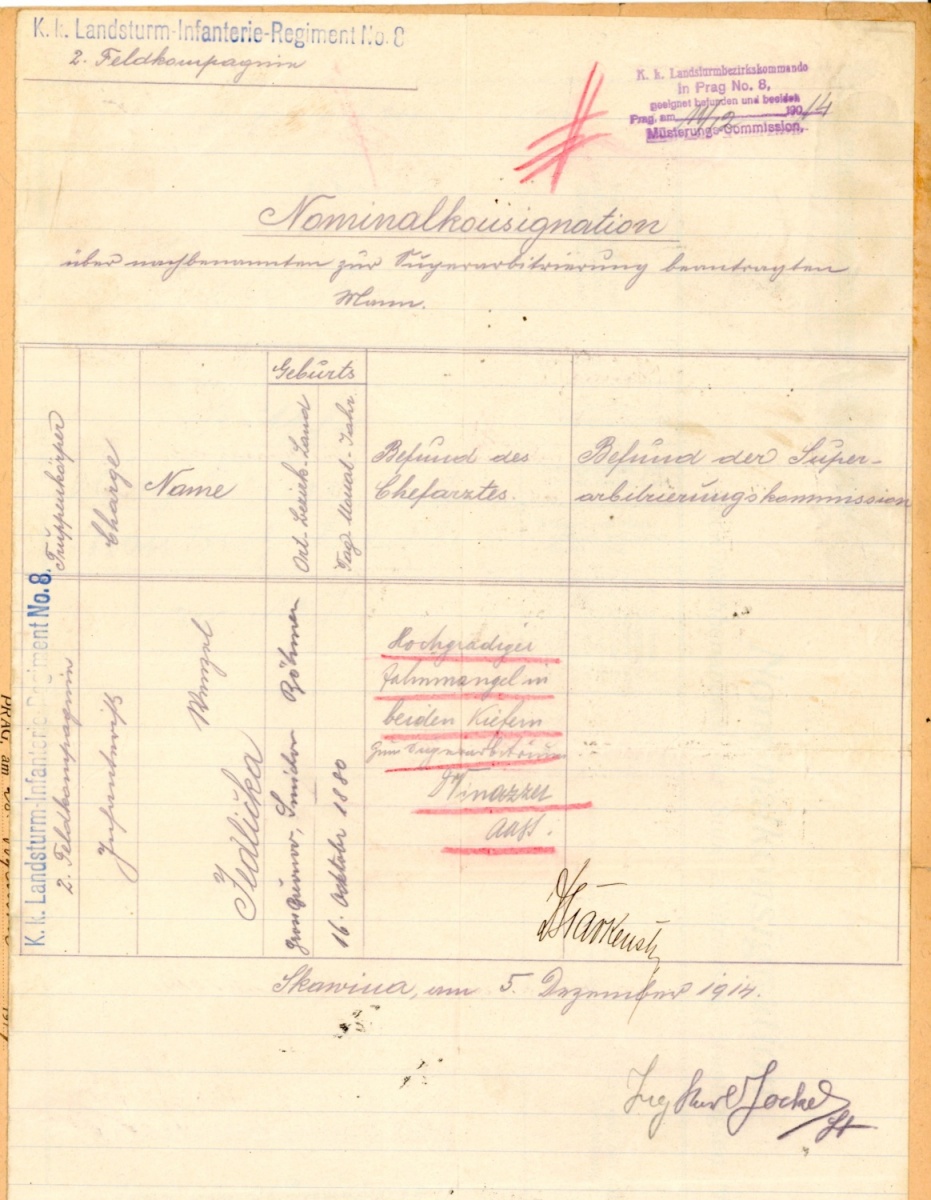 K. k. Landsturm-Infanterie-Regiment No. 8
2. Feldkompagnie
K. k. Landsturmbezirkskommando
in Prag No. 8,
geeignet befunden und beeidet
Prag, am 11/12 190 14
Musterungs-Commission.
Nominalkonsignation
über nachbenannten zur Superarbitrierung beantragten
Mann.
Truppenkörper
Charge
Name
Geburts
Ort-Bezirk-Land
Tag-Monat-Jahr
Befund des
Chefarztes.
Befund der Super-
arbitrierungskommission
K. k. Landsturm-Infanterie-Regiment No. 8.
2. Feldkompagnie
Infanterist
Wenzel
Jedlička
Böhmen
16. Oktober 1880
Hochgradiger
Zahnmangel in
beiden Kiefern
zum
Skawina, am 5. Dezember 1914.
PRAG, am